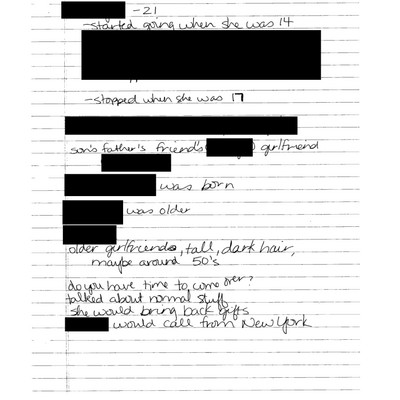 -21
-started going when she was 14
-stopped when she was 17
son's father's friends girlfriend
was born
was older
older girlfriends, tall, dark hair,
maybe around 50's
do you have time to come over?
talked about normal stuff
she would bring back gifts
would call from New York